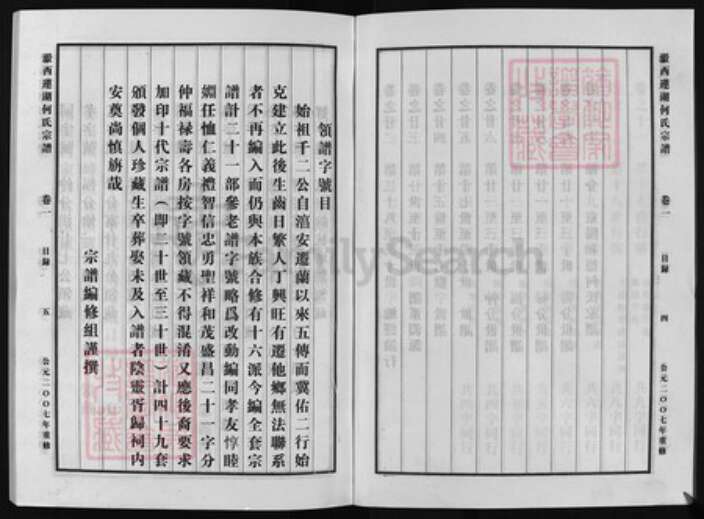 瀫西蓮湖何氏宗譜
卷一
目録
四
公元二〇〇七年重修
領譜字號目
始祖千二公自涫安遷蘭以來五傳而冀佑二行始
克建立此後生齒日繁人丁興旺有遷他鄉無法聯系
者不再編入而仍與本族合修有十六派今編全套宗
譜計二十一部參老譜字號略爲改動編同孝友惇睦
婣任恤仁義禮智信忠勇聖祥和茂盛昌二十一字分
仲福禄壽各房按字號領藏不得混淆又應後裔要求
加印十代宗譜(即二十世至三十世)計四十九套
頒發個人珍藏生卒葬娶未及入譜者陰靈胥歸祠内
安奠尚慎旃哉
宗譜編修組謹撰
瀫西蓮湖何氏宗譜
卷一
目録
五
公元二〇〇七年重修
FamilySearch